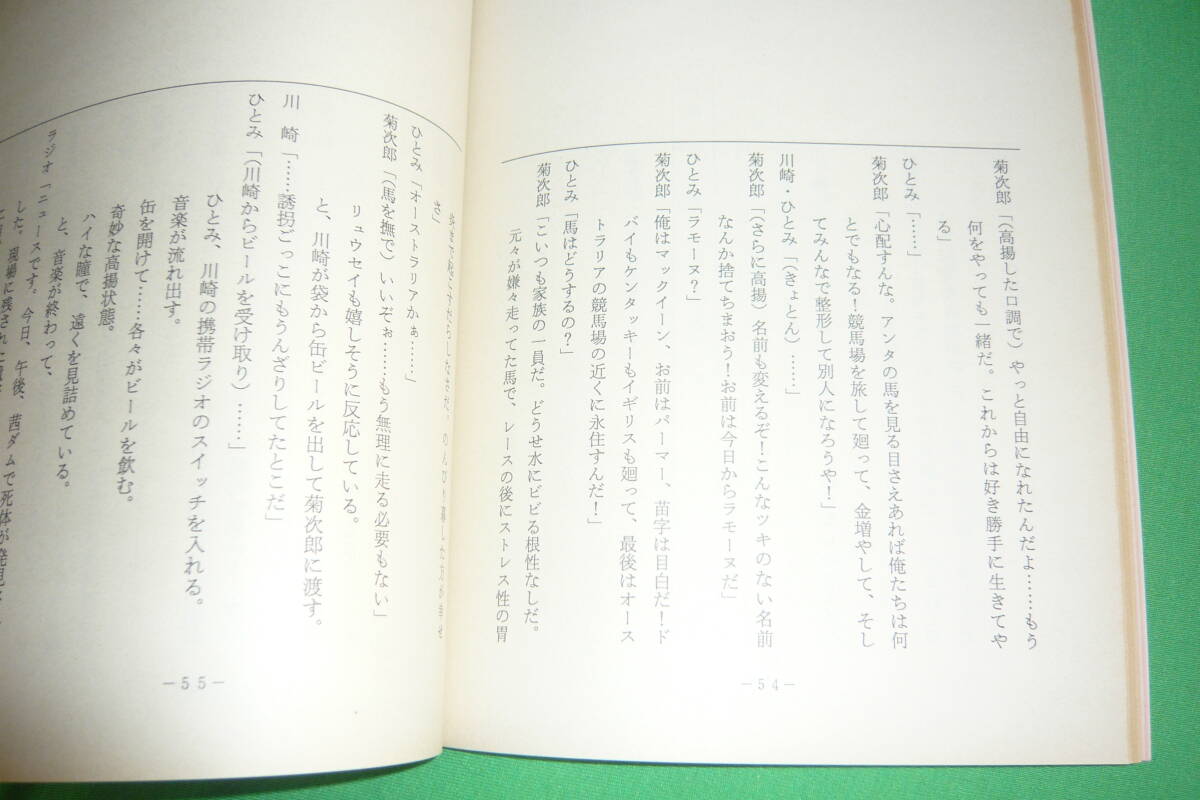 菊次郎「（高揚した口調で）やっと自由になれたんだよ……もう
何をやっても一緒だ。これからは好き勝手に生きてや
る」
ひとみ「……」
菊次郎「心配すんな。アンタの馬を見る目さえあれば俺たちは何
とでもなる！競馬場を旅して廻って、金増やして、そし
てみんなで整形して別人になろうや！」
川崎・ひとみ「（きょとん）……」
菊次郎「（さらに高揚）名前も変えるぞ！こんなツキのない名前
なんか捨てちまおう！お前は今日からラモーヌだ」
ひとみ「ラモーヌ？」
菊次郎「俺はマックイーン、お前はパーマー、苗字は目白だ！ド
バイもケンタッキーもイギリスも廻って、最後はオース
トラリアの競馬場の近くに永住すんだ！」
ひとみ「馬はどうするの？」
菊次郎「こいつも家族の一員だ。どうせ水にビビる根性なしだ。
元々が嫌々走ってた馬で、レースの後にストレス性の胃
－54－
のんびり暮した方が幸せ
さ」
ひとみ「オーストラリアかぁ……」
菊次郎「（馬を撫で）いいぞぉ……もう無理に走る必要もない」
リュウセイも嬉しそうに反応している。
と、川崎が袋から缶ビールを出して菊次郎に渡す。
川　崎「……誘拐ごっこにもうんざりしてたとこだ」
ひとみ「（川崎からビールを受け取り）……」
ひとみ、川崎の携帯ラジオのスイッチを入れる。
音楽が流れ出す。
缶を開けて……各々がビールを飲む。
奇妙な高揚状態。
ハイな瞳で、遠くを見詰めている。
と、音楽が終わって、
ラジオ「ニュースです。今日、午後、茜ダムで死体が発見さ
した。現場に残された
－55－